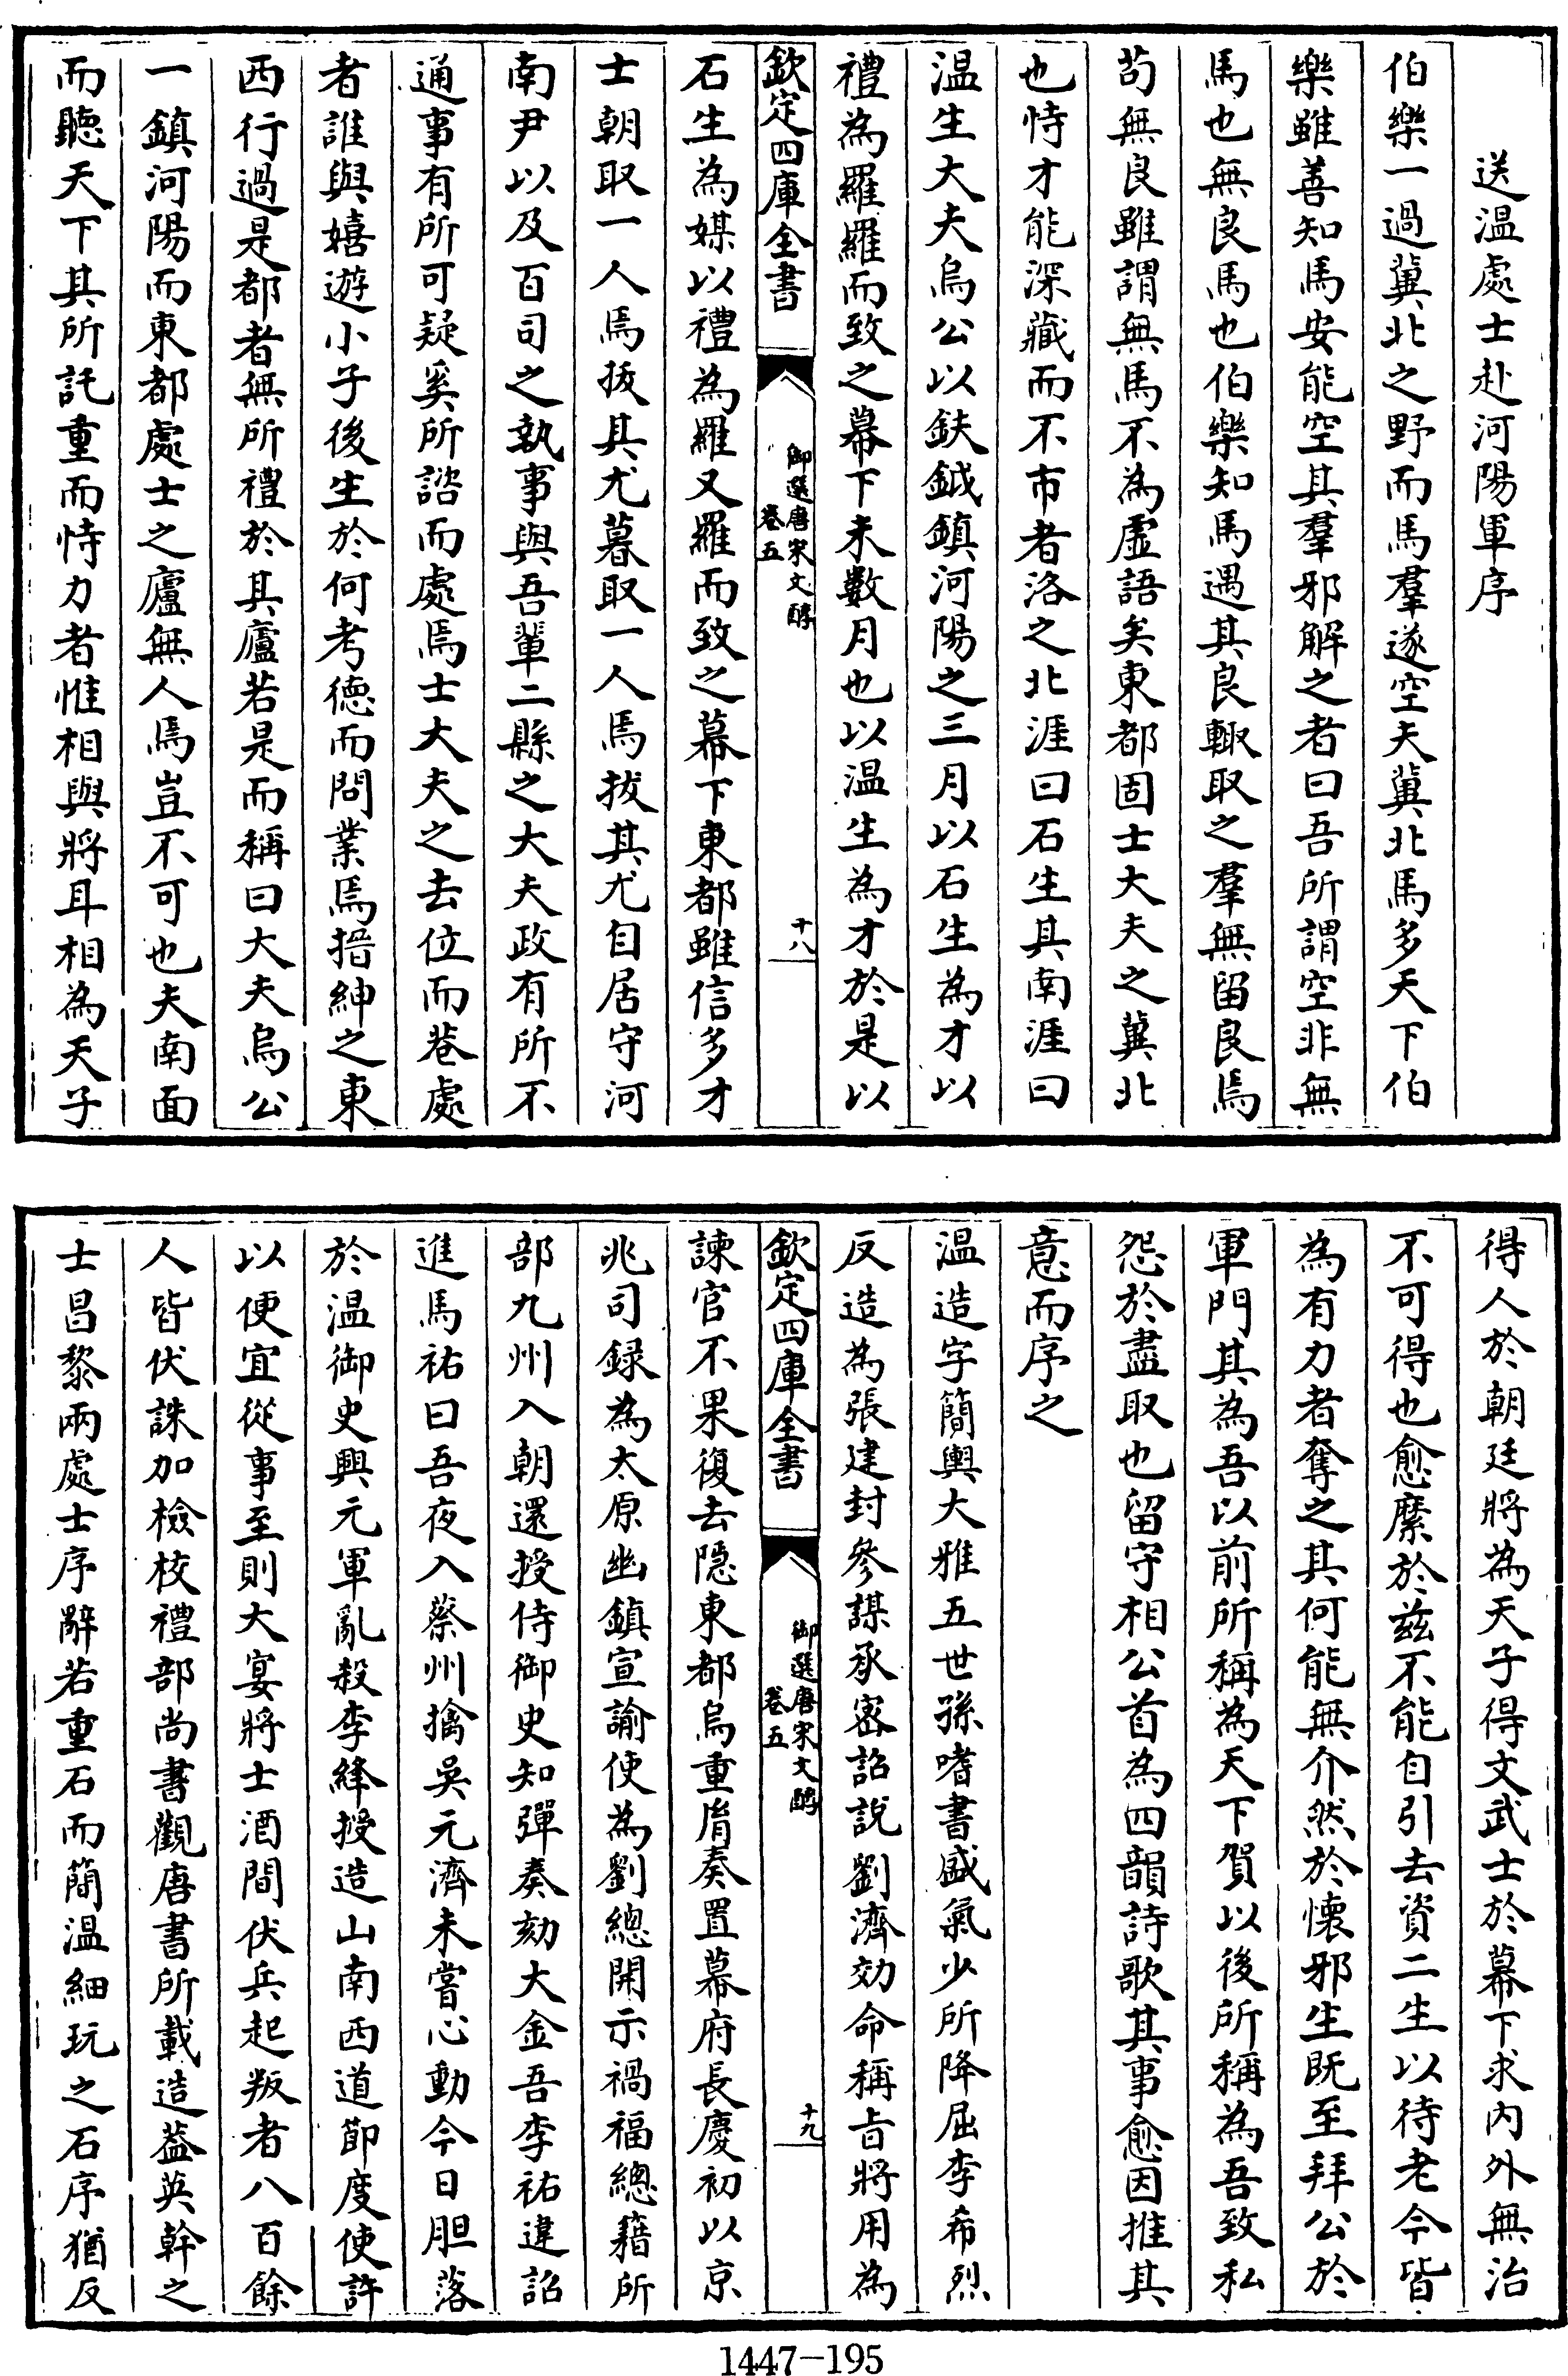 送温處士赴河陽軍序
伯樂一過冀北之野而馬羣遂空夫冀北馬多天下伯
樂雖善知馬安能空其羣邪解之者曰吾所謂空非無
馬也無良馬也伯樂知馬遇其良輒取之羣無留良焉
苟無良雖謂無馬不為虛語矣東都固士大夫之冀北
也恃才能深藏而不市者洛之北涯曰石生其南涯曰
温生大夫烏公以鈇鉞鎮河陽之三月以石生為才以
禮為羅羅而致之幕下未數月也以温生為才於是以
欽定四庫全書
御選唐宋文醇
卷五
十八
石生為媒以禮為羅又羅而致之幕下東都雖信多才
士朝取一人焉拔其尤暮取一人焉拔其尤自居守河
南尹以及百司之執事與吾輩二縣之大夫政有所不
通事有所可疑奚所諮而處焉士大夫之去位而巷處
者誰與嬉遊小子後生於何考德而問業焉搢紳之東
西行過是都者無所禮於其廬若是而稱曰大夫烏公
一鎮河陽而東都處士之廬無人焉豈不可也夫南面
而聽天下其所託重而恃力者惟相與將耳相為天子
得人於朝廷將為天子得文武士於幕下求內外無治
不可得也愈縻於兹不能自引去資二生以待老今皆
為有力者奪之其何能無介然於懐邪生既至拜公於
軍門其為吾以前所稱為天下賀以後所稱為吾致私
怨於盡取也留守相公首為四韻詩歌其事愈因推其
意而序之
温造字簡輿大雅五世孫嗜書盛氣少所降屈李希烈
反造為張建封參謀承密詔說劉濟効命稱旨將用為
欽定四庫全書
御選唐宋文醇
卷五
十九
諫官不果復去隱東都烏重胤奏置幕府長慶初以京
兆司録為太原幽鎮宣諭使為劉總開示禍福總籍所
部九州入朝還授侍御史知彈奏劾大金吾李祐違詔
進馬祐曰吾夜入蔡州擒吳元濟未嘗心動今日胆落
於温御史興元軍亂殺李絳授造山南西道節度使許
以便宜從事至則大宴將士酒間伏兵起叛者八百餘
人皆伏誅加檢校禮部尚書觀唐書所載造葢英幹之
士昌黎兩處士序辭若重石而簡温細玩之石序猶反
1447-195